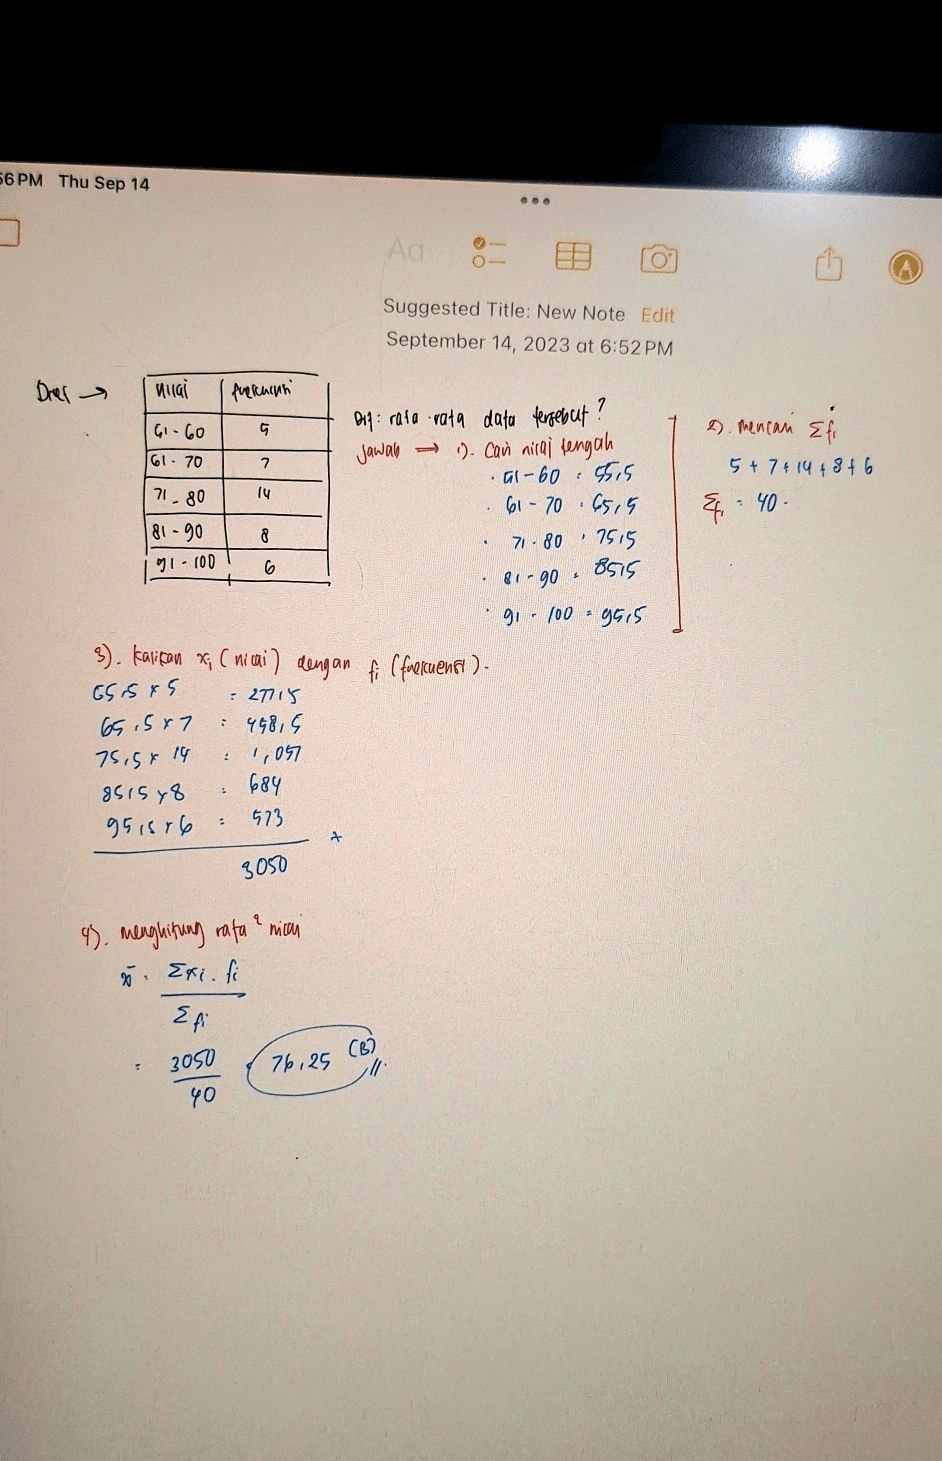 56 PM Thu Sep 14
Aa
Suggested Title: New Note Edit
September 14, 2023 at 6:52 PM
Dik →
nilai frekuensi
51-60 5
61-70 7
71-80 14
81-90 8
91-100 6
Dit: rata-rata data tersebut?
Jawab → 1). Cari nilai tengah
· 51-60 = 55,5
· 61-70 = 65,5
· 71-80 = 75,5
· 81-90 = 85,5
· 91-100 = 95,5
2). mencari Σfi
5+7+14+8+6
Σfi = 40.
3). kalikan xi (nilai) dengan fi (frekuensi).
55,5 x 5 = 277,5
65,5 x 7 = 458,5
75,5 x 14 = 1,057
85,5 x 8 = 684
95,5 x 6 = 573
+
3050
4). menghitung rata² nilai
x̄ = Σxi . fi
Σfi
= 3050 = 76,25 (B)
40